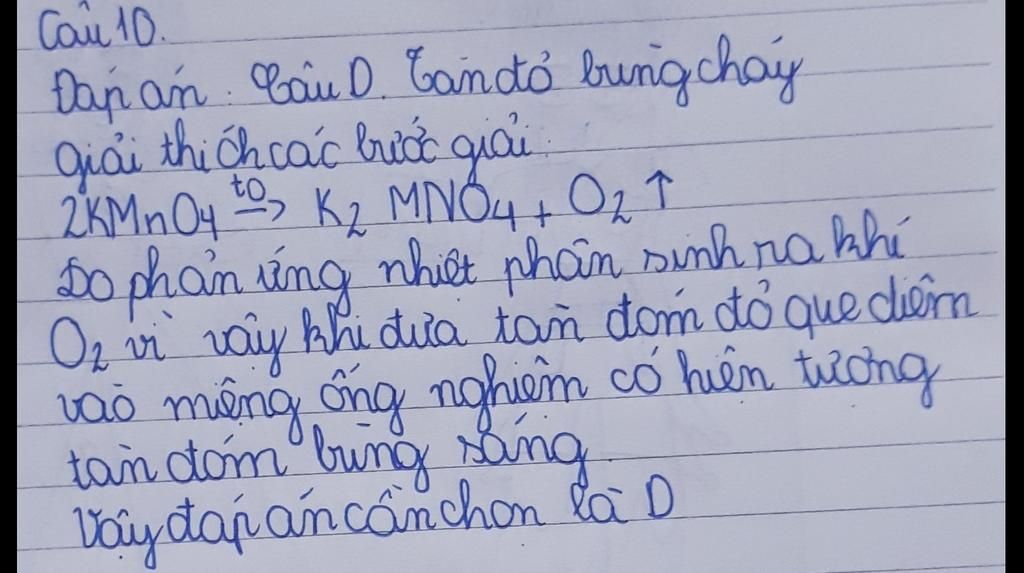 Câu 10.
Đáp án. Câu D. Tàn đỏ bùng cháy
giải thích các bước giải:
2KMnO4 to→ K2 MNO4 + O2 ↑
Do phản ứng nhiệt phân sinh ra khí
O2 vì vậy khi đưa tàn đóm đỏ que diêm
vào miệng ống nghiệm có hiện tượng
tàn đóm bùng sáng
Vậy đáp án cần chọn là D